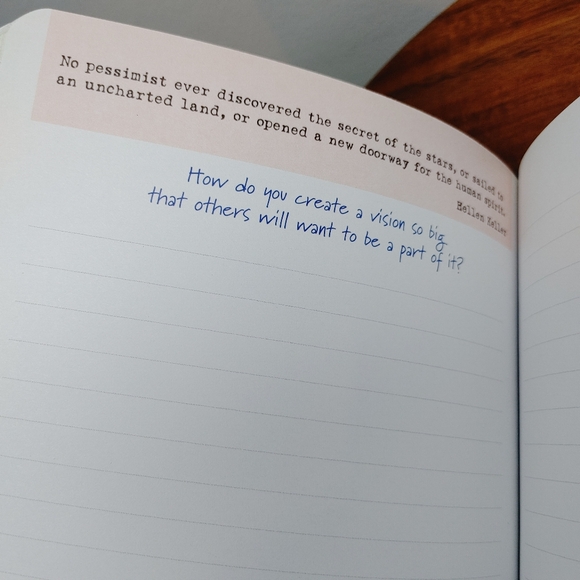 No pessimist ever discovered the secret of the stars, or sailed to
an uncharted land, or opened a new doorway for the human spirit.
Hellen Keller
How do you create a vision so big
that others will want to be a part of it?